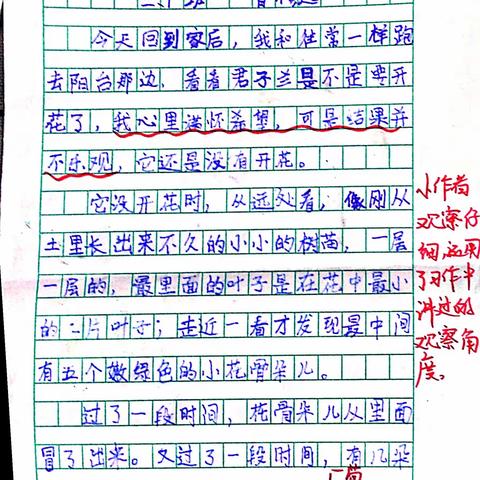 今天回到家后，我和往常一样跑
去阳台那边，看看君子兰是不是要开
花了，我心里满怀希望，可是结果并
不乐观，它还是没有开花。
它没开花时，从远处看，像刚从
土里长出来不久的小小的树苗，一层
一层的，最里面的叶子是在花中最小
的一片叶子；走近一看才发现最中间
有五个嫩绿色的小花骨朵儿。
过了一段时间，花骨朵儿从里面
冒了出来。又过了一段时间，有几朵
小作者
观察仔
细，运用
了习作中
讲过的
观察角
度。